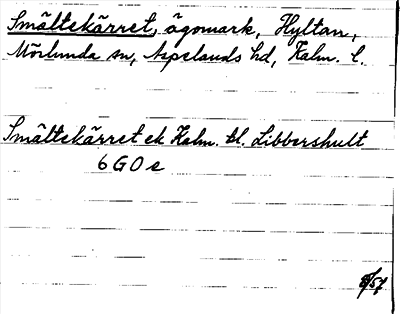 Smältekärret, ägomark, Hyltan,
Mörlunda sn, Aspelands hd, Kalm. l.
Smältekärret ek Kalm. bl. Libbershult
6 G O e
8/57